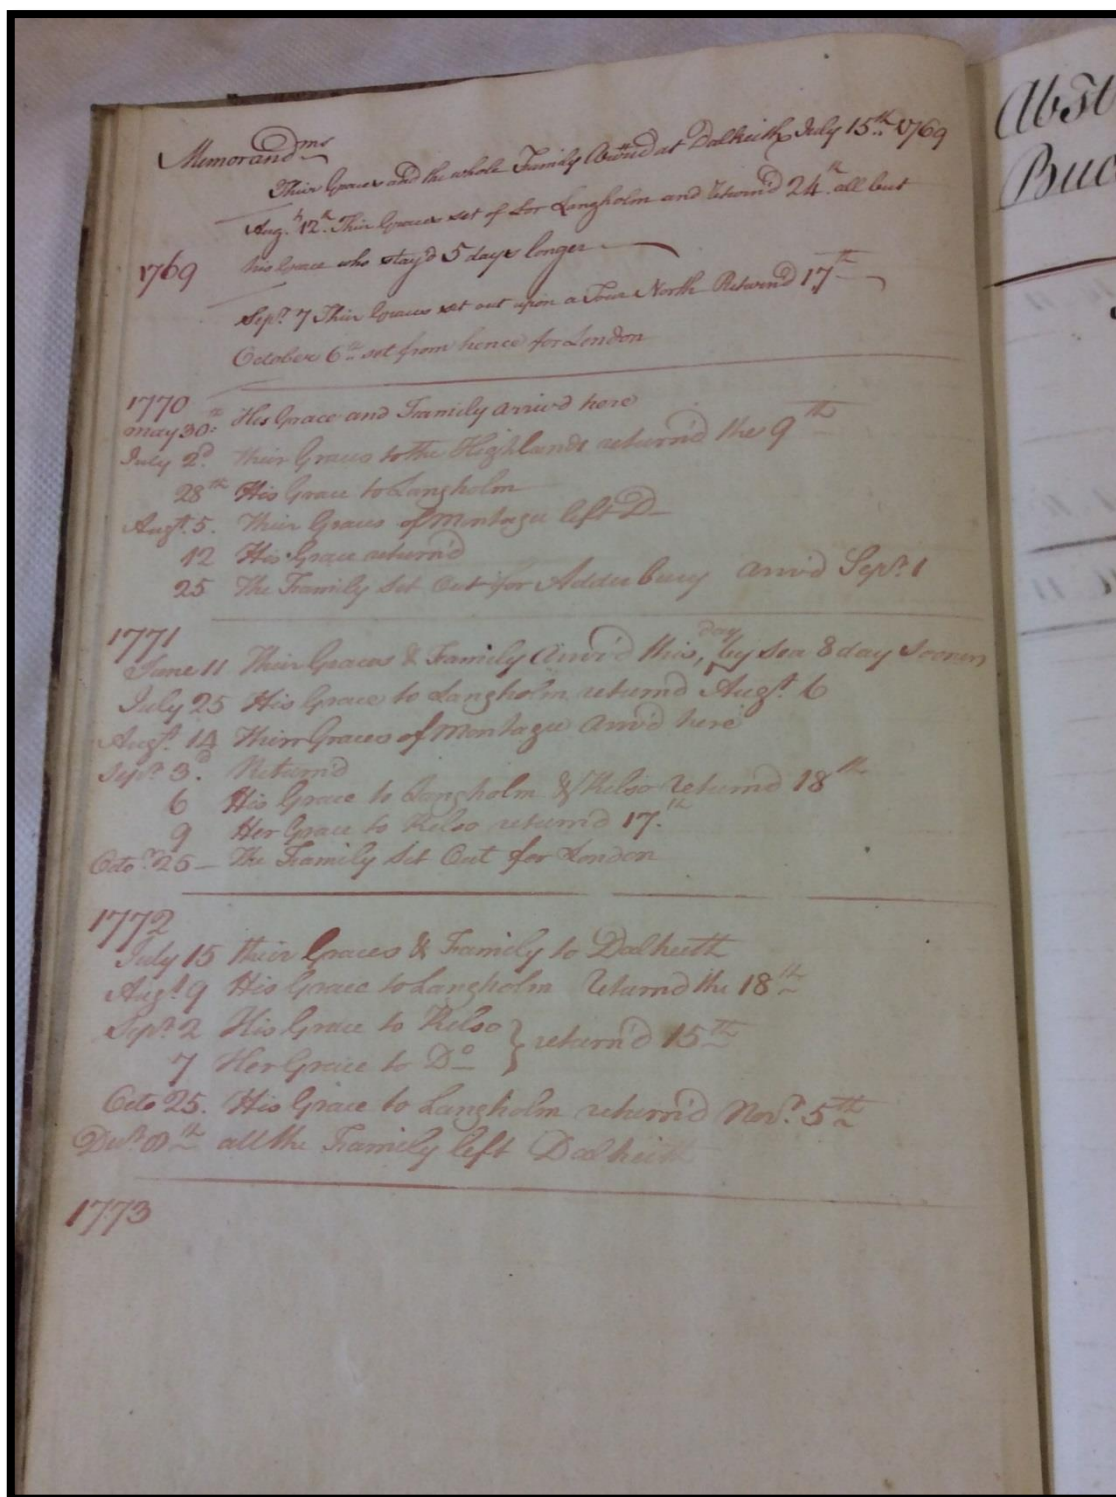 Memorandms
Their Graces and the whole Family Arriv'd at Dalkeith July 15th 1769
Augt 12th Their Graces set of for Langholm and Return'd 24th all but
1769 his Grace who stay'd 5 days longer
Sepr 7 Their Graces set out upon a Tour North Return'd 17th
October 6th set from hence for London
1770
May 30th His Grace and Family arriv'd here
July 2d Their Graces to the Highlands return'd the 9th
28th His Grace to Langholm
Augt 5. Their Graces of Montagu left D
12 His Grace return'd
25 The Family Set Out for Adderbury arriv'd Sepr 1
1771
June 11 Their Graces & Family Arriv'd this day, by sea 8 day Sooner
July 25 His Grace to Langholm return'd Augt 6
Augt 14 Their Graces of Montagu arriv'd here
Sepr 3d Return'd
6 His Grace to Langholm & Kelso return'd 18th
9 Her Grace to Kelso return'd 17th
Octor 25 The Family Set Out for London
1772
July 15 their Graces & Family to Dalkeith
Augt 9 His Grace to Langholm Return'd the 18th
Sepr 2 His Grace to Kelso } return'd 15th
7 Her Grace to Do
Octo 25. His Grace to Langholm return'd Novr 5th
all the Family left Dalkeith
1773
Abst
Bucc